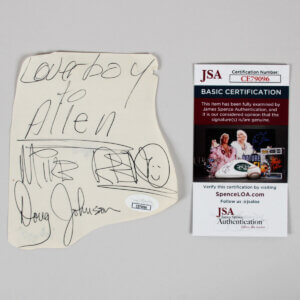 Loverboy
to
Allen
Mike RENO
Doug Johnson
JSA
JSA
Certification Number
CE79096
BASIC CERTIFICATION
This item has been fully examined by
James Spence Authentication, and
it is our considered opinion that the
signature(s) is/are genuine.
Verify this certification by visiting
SpenceLOA.com
JSA
Authentication